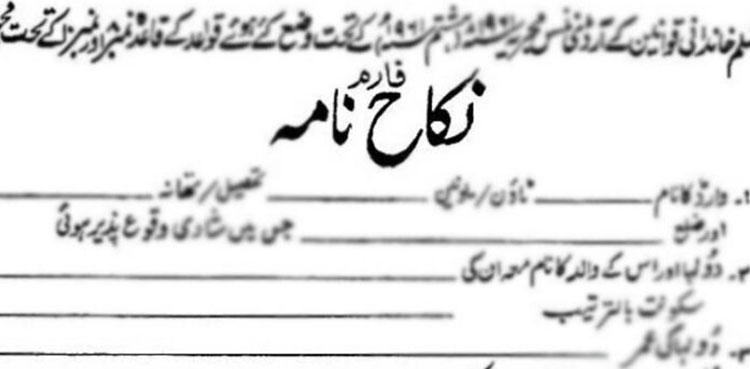 مسلم خاندانی قوانین کے آرڈی ننس مجریہ ۱۹۶۱ء (ہشتم ۱۹۶۱ء) کے تحت وضع کئے ہوئے قواعد کے قاعدہ نمبر ۸ اور نمبر ۱۰ کے تحت
فارم
نکاح نامہ
۱۔ وارڈ کا نام ــــــ ٹاؤن / یونین ــــــ تحصیل / تھانہ ــــــ
اور ضلع ــــــ جس میں شادی وقوع پذیر ہوئی
۲۔ دُولہا اور اس کے والد کا نام معہ ان کی ــــــ
سکونت بالترتیب ــــــ
۳۔ دُولہا کی عمر ــــــ